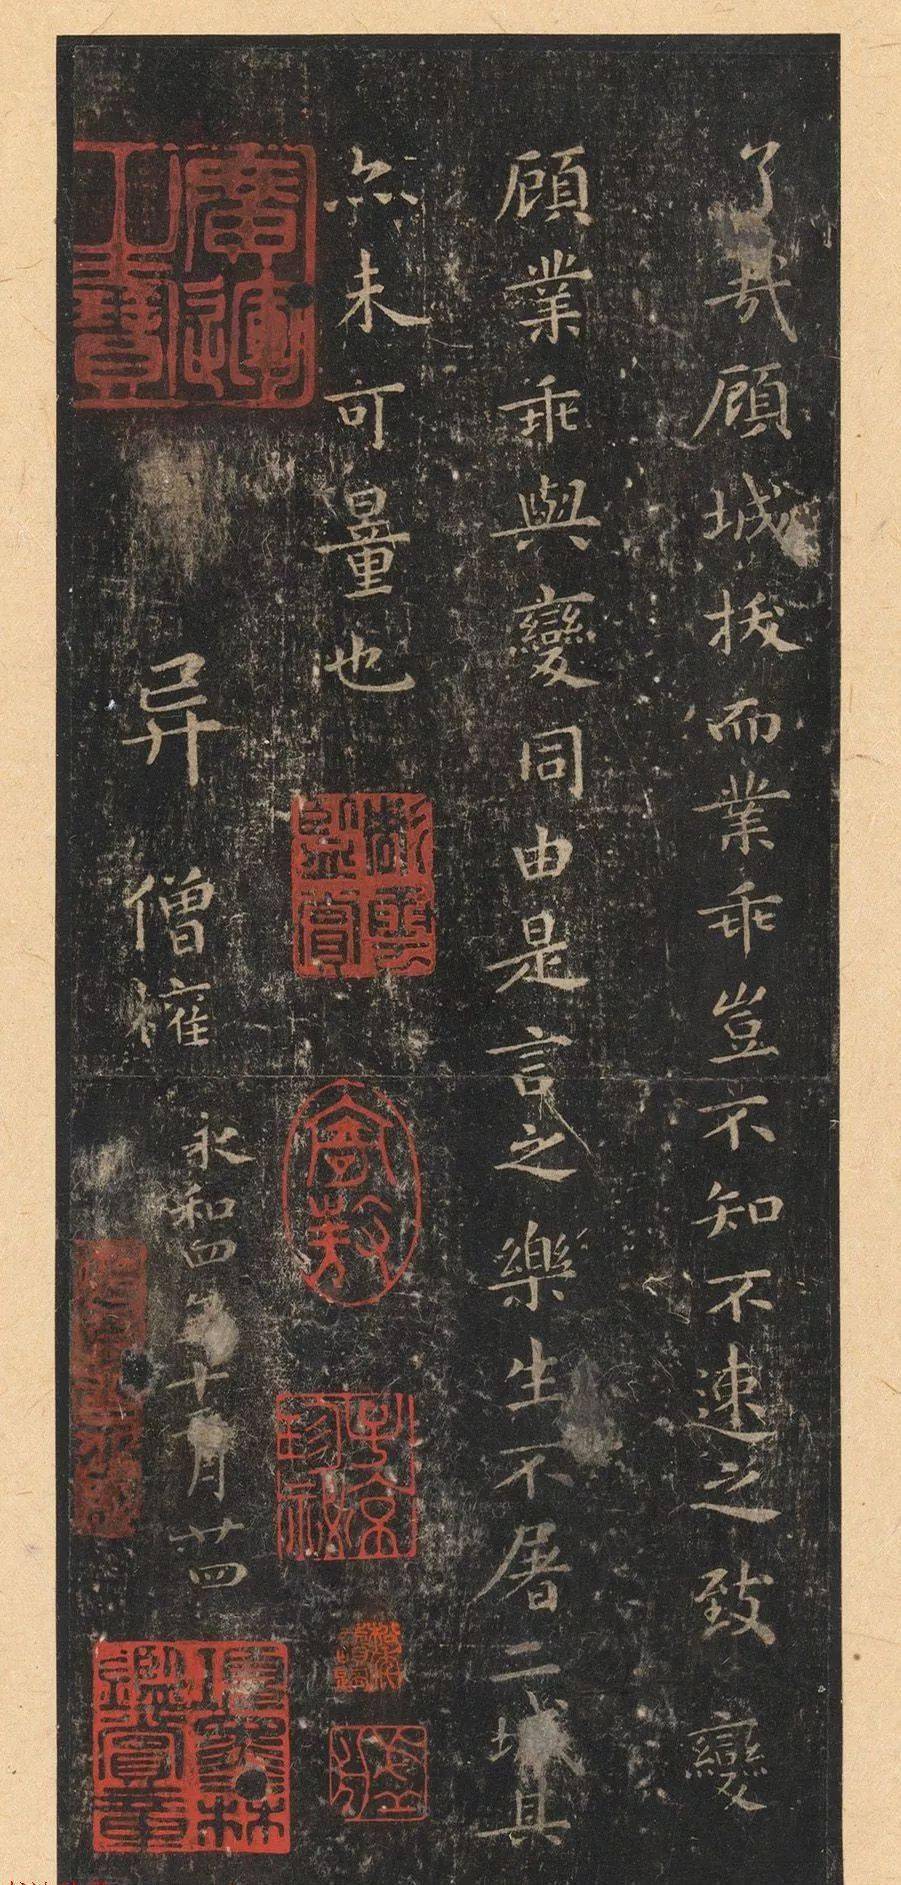 了哉顧城拔而業乖豈不知不速之致變
顧業乖與變同由是言之樂生不屠二城其
亦未可量也
异 僧權
永和四年十二月廿四
廣運之寶
項墨林鑑賞章